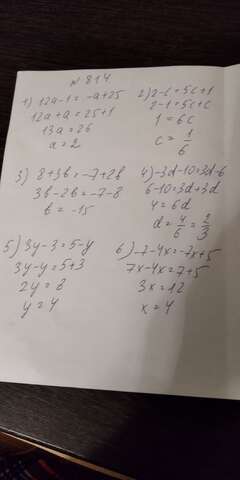 № 814
1) 12a-1=-a+25
12a+a=25+1
13a=26
a=2
2) 2-c=5c+1
2-1=5c+c
1=6c
c=1/6
3) 8+3b=-7+2b
3b-2b=-7-8
b=-15
4) -3d-10=3d-6
6-10=3d+3d
4=6d
d=4/6=2/3
5) 3y-3=5-y
3y-y=5+3
2y=8
y=4
6) -7-4x=-7x+5
7x-4x=7+5
3x=12
x=4